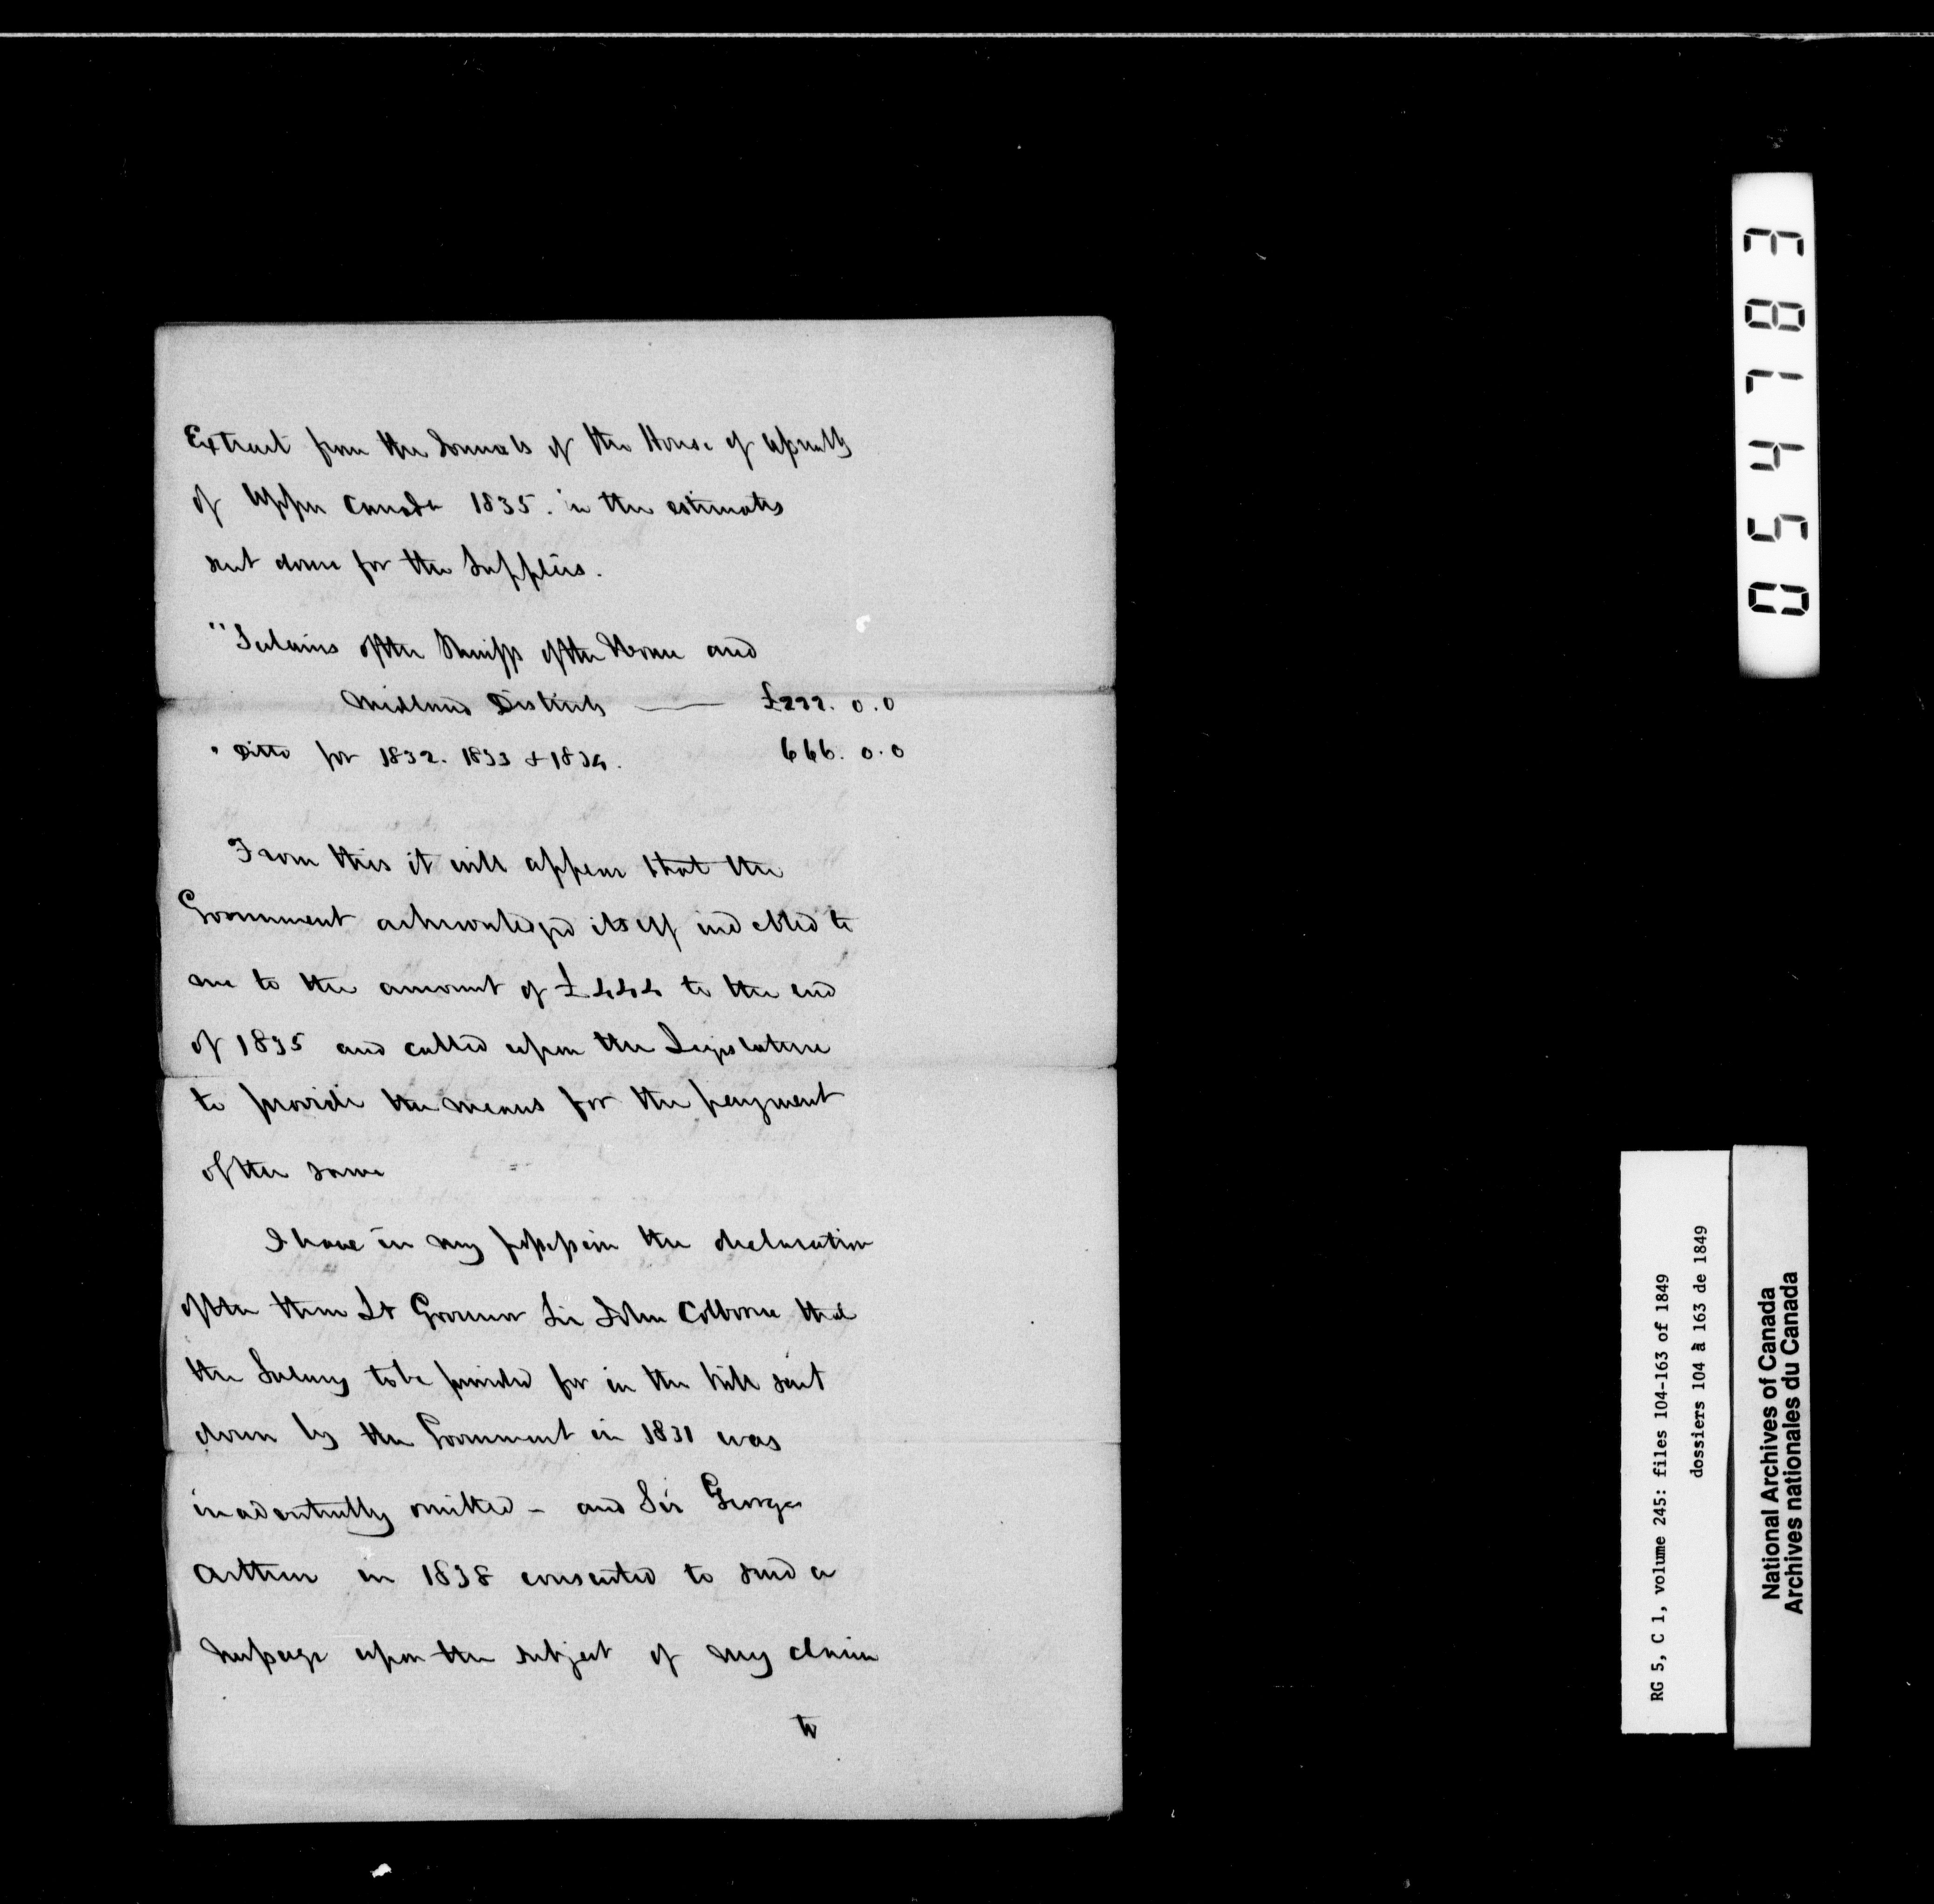 Extract from the Journals of the House of Assembly
of Upper Canada 1835. in the estimates
sent down for the Supplies.
"Salaries of the Sheriffs of the Home and
Midland Districts —— £222. 0. 0
" Ditto for 1832. 1833 & 1834. 666. 0. 0
From this it will appear that the
Government acknowledged itself indebted to
me to the amount of £444 to the end
of 1835 and called upon the Legislature
to provide the means for the payment
of the same
I have in my possession the declaration
of the then Lt Governor Sir John Colborne that
the Salary to be provided for in the bill sent
down by the Government in 1831 was
inadvertently omitted - and Sir George
Arthur in 1838 consented to send a
message upon the subject of my claim
to
054783
RG 5, C 1, volume 245: files 104-163 of 1849
dossiers 104 à 163 de 1849
National Archives of Canada
Archives nationales du Canada